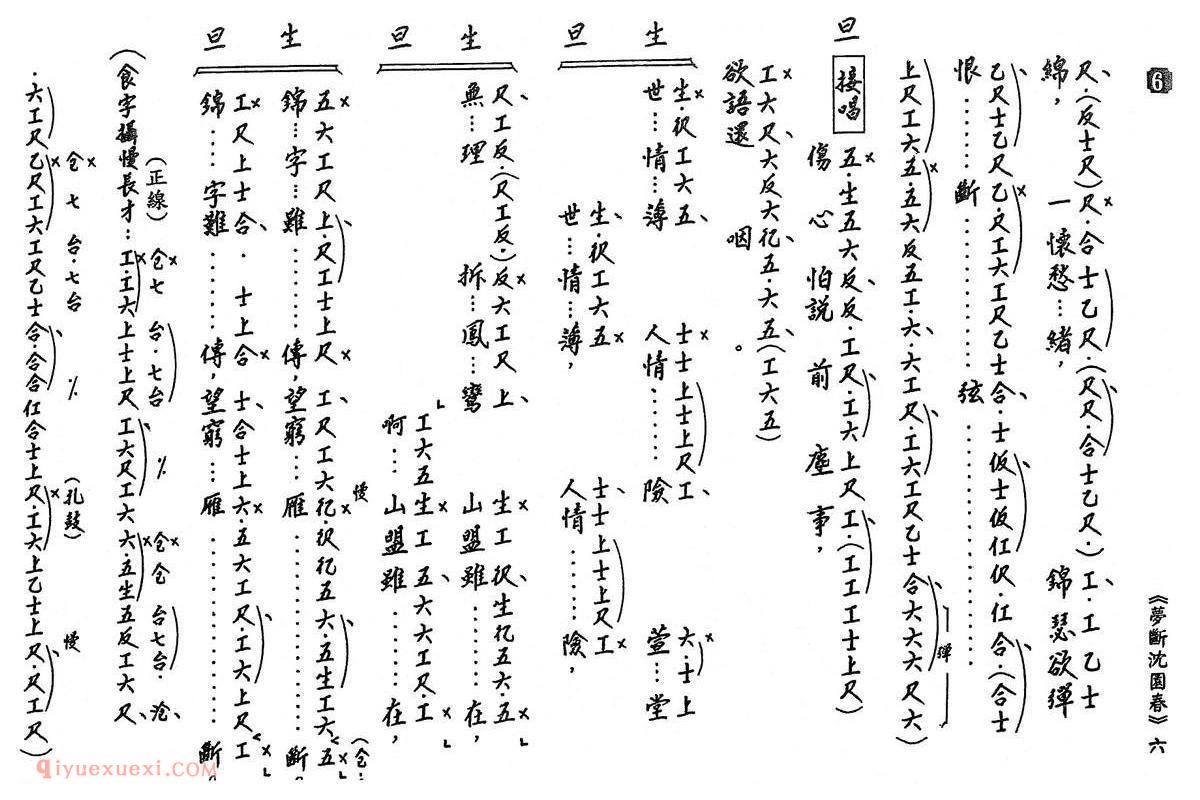 6
《夢斷沈園春》六
尺、(反士尺)尺·合士乙尺·(尺尺·合士乙尺·)工、工乙士
綿，一懷愁…緒，錦瑟欲彈
乙尺士乙尺乙·尺工六工尺乙士合·士仮士仮仜伬·仜合·(合士
恨………斷…………弦………………
彈
上尺工六五·五六反五工·六·六工尺·工六工尺乙士合六六六尺六)
旦
接唱
五·生五六反、反·工尺·工六上尺工·(工工工士上尺)
傷心怕説前塵事，
工六尺、六反六𠆾五·六·五、(工六五)
欲語還咽。
生
生·伬工六五、士士上士上尺工、六·士上
世…情…薄人情………險萱…堂
旦
生·伬工六五士士上士上尺工
世…情…薄，人情………險，
生
尺工反·(尺工反·)反六工尺上、生工伬、生𠆾五六·五
無…理拆…鳳…鸞山盟雖………在，
旦
工六五生工五、六六工尺·工
啊…山盟雖………在，
生
五六工尺上·尺工士上尺工、尺工六𠆾·伬𠆾五六·五生工六五
錦…字…雖………傳，望窮…雁……………斷。
慢
旦
工尺上士合·士上合士、合士上六·五六工尺·工六上尺工
錦…字難………傳，望窮…雁……………斷。
(正線)
(食字攝慢長才：工·工六上士上尺工六尺工六六五生五反工六、尺、
仓七台·七台
仓七台·七台
(扎鼓)
慢
·六工尺乙尺工六工尺乙士合·合合仜合士上尺·工六上乙士上尺·尺工尺)
qiyuexuexi.COM